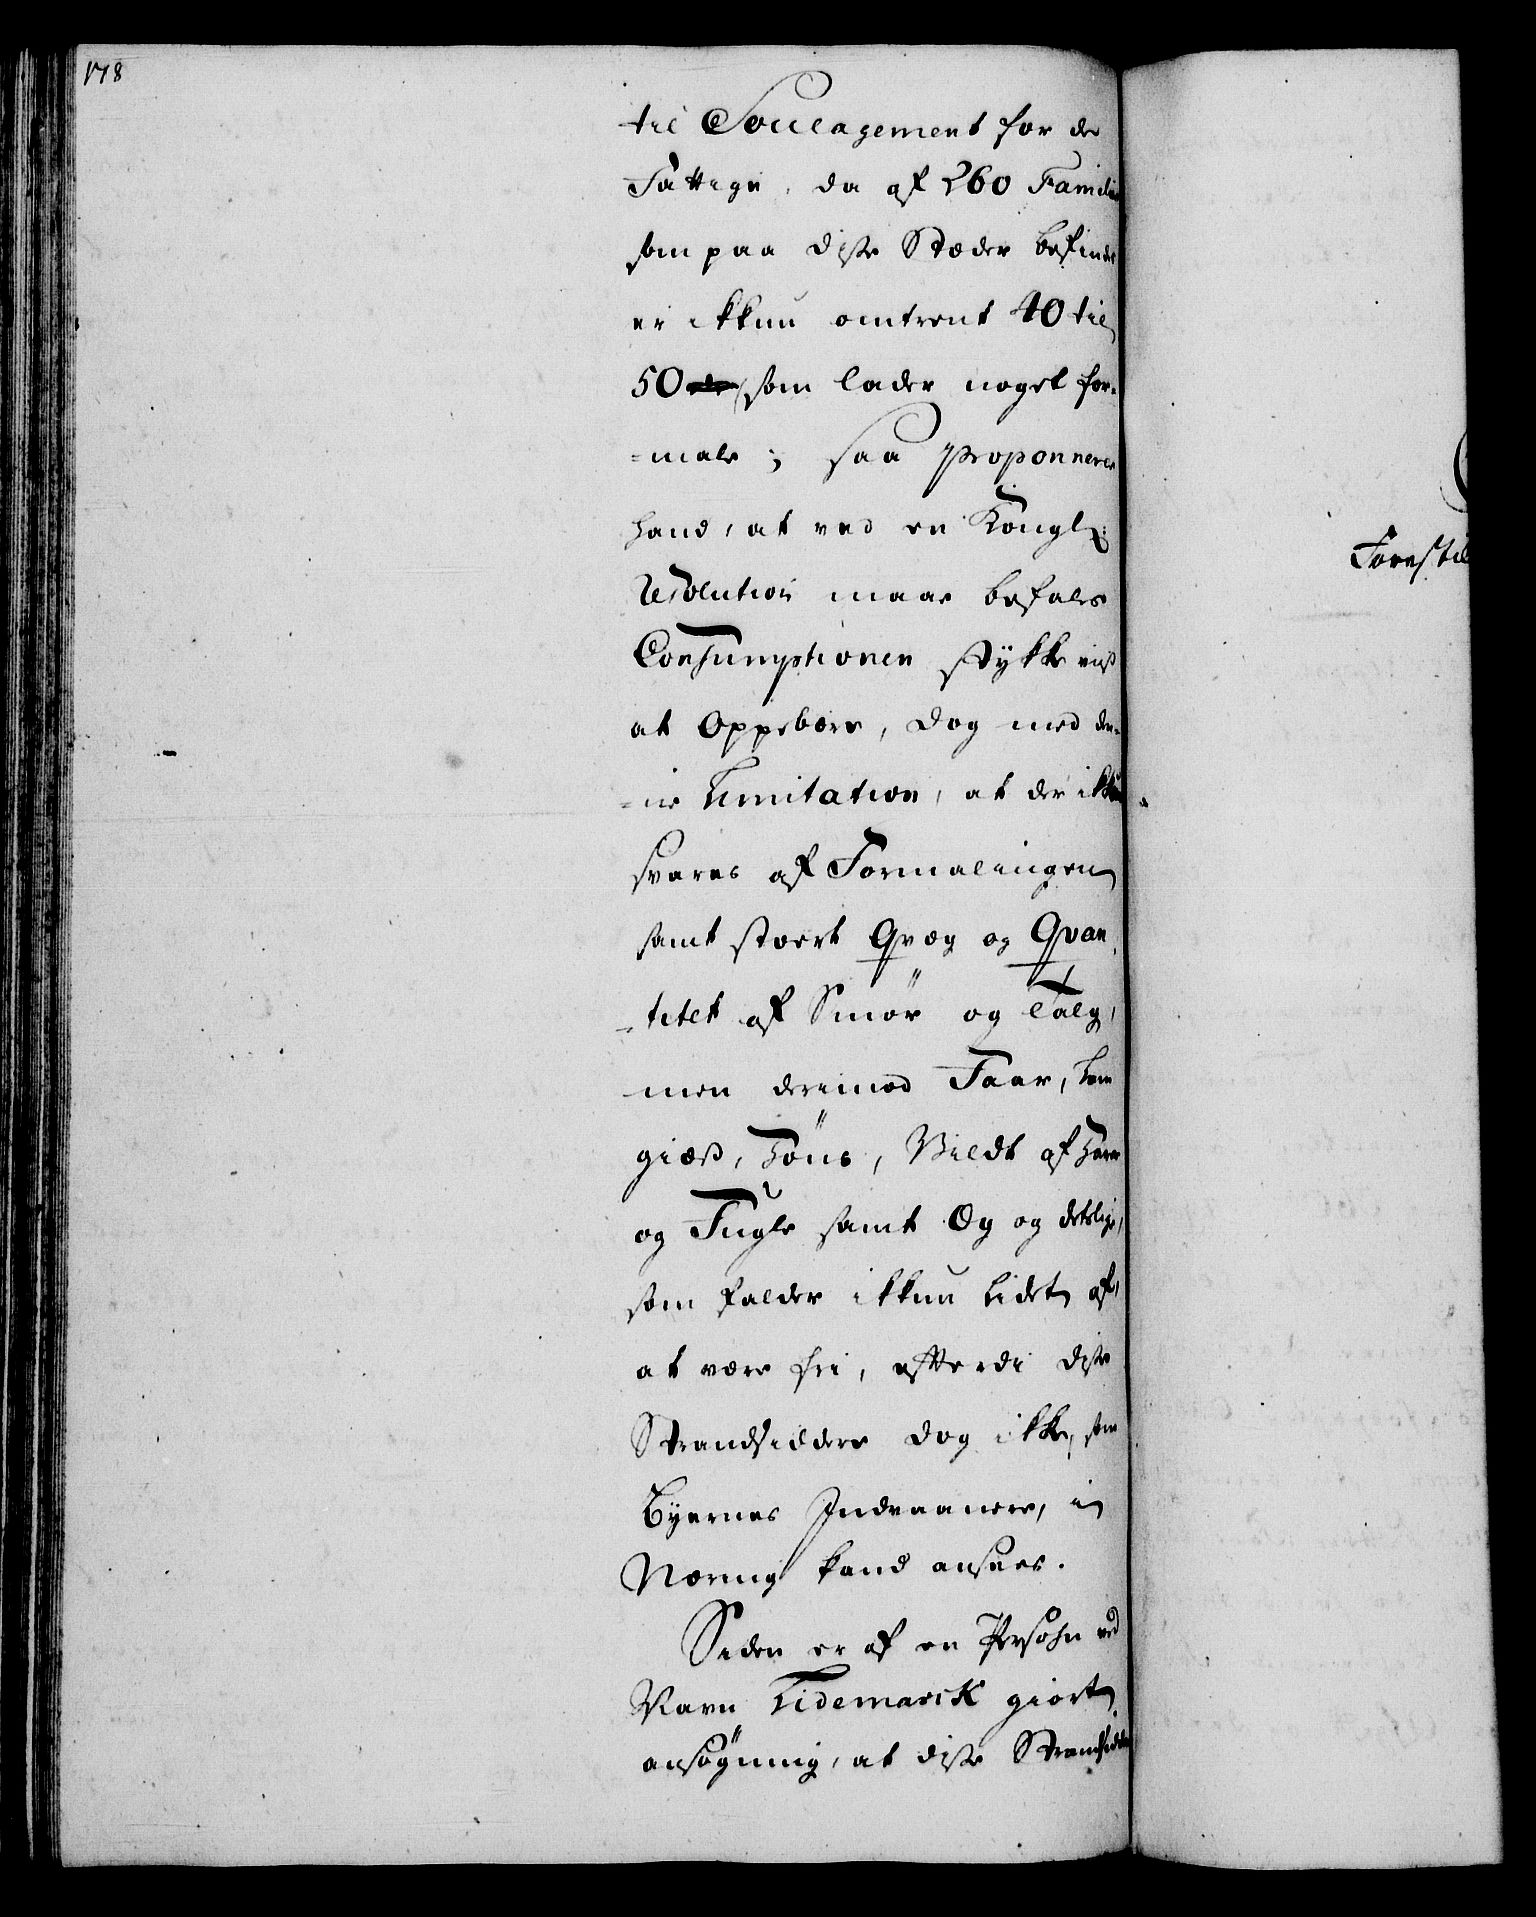 178
til Soulagement for de
Fattige, da af 260 Familier
som paa disse Stæder befindes
er ikkun omtrent 40 til
50 som lader noget for-
-male; saa proponnerer
hand, at ved en Kongl:
Resolution maae befales
Consumptionen stykkeviis
at Oppebære, dog med den-
-ne Limitation, at der ikkun
svares af Formalingen
samt stoert Qvæg og Qvan-
-titet af Smör og Talg,
men derimod Faar, Lam
giæs, Höns, Vildt af Harer
og Fugle samt Æg og detslige,
som falder ikkun lidet af,
at være fri, efterdi disse
Strandsiddere dog ikke, som
Byernes Indvaanere, i
Næring kand ansees.
Siden er af en Persohn ved
Navn Tidemarck giort
ansögning, at disse Strandsiddere
Forestil